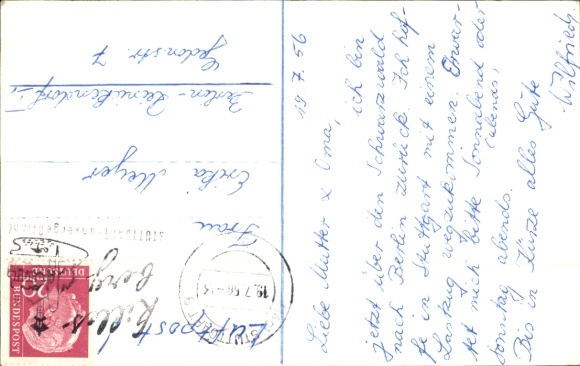 19.7.56
Liebe Mutter & Oma,
ich bin
jetzt über den Schwarzwald
nach Berlin zurück. Ich hof-
fe in Stuttgart mit einem
Lastzug wegzukommen. Erwar-
tet mich bitte Sonnabend oder
(abends)
Sonntag abends.
Bis in Kürze alles Gute
Wilfried
Luftpost
Frau
Erika Meyer
Berlin-Reinickendorf
str. 7
19.7.56
STUTTGART
DEUTSCHE
BUNDESPOST
20
Killes-
berg